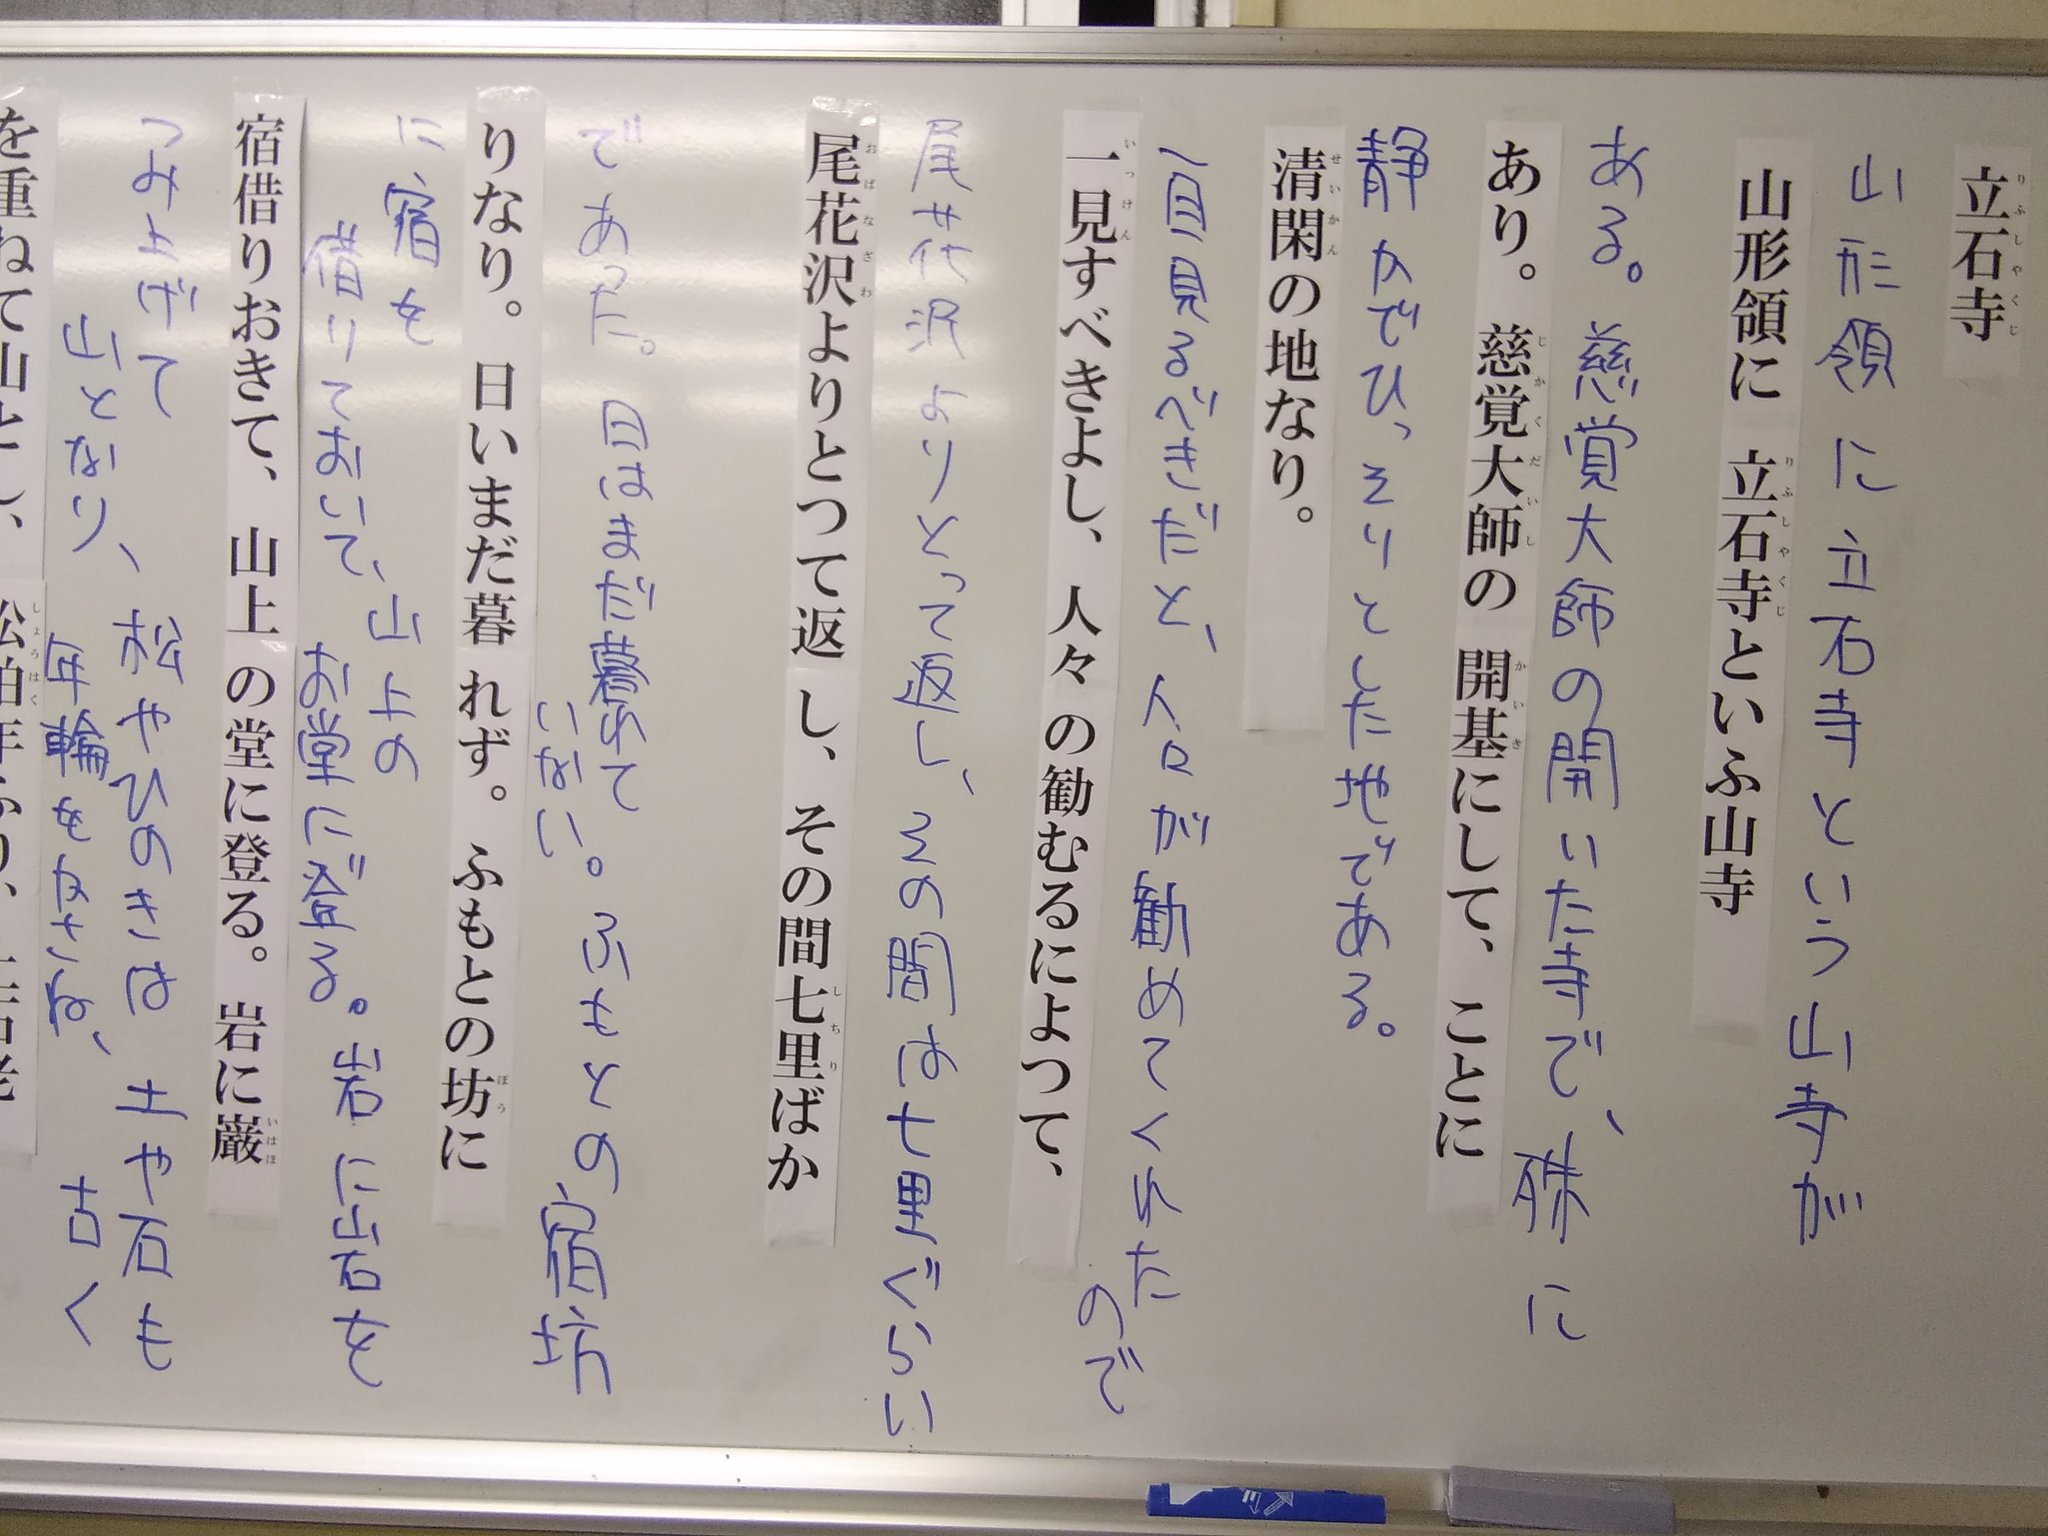 立石寺
りふしやくじ
山形領に立石寺という山寺が
山形領に 立石寺といふ山寺
りふしやくじ
ある。慈覚大師の開いた寺で、殊に
あり。慈覚大師の 開基にして、ことに
じかくだいし かいき
静かでひっそりとした地である。
清閑の地なり。
せいかん
一目見るべきだと、人々が勧めてくれたので
一見すべきよし、人々の勧むるによつて、
いっけん
尾花沢よりとって返し、その間は七里ぐらい
尾花沢よりとつて返し、その間七里ばか
おばなざわ しちり
であった。日はまだ暮れていない。ふもとの宿坊
りなり。日いまだ暮れず。ふもとの坊に
ぼう
に宿を借りておいて、山上のお堂に登る。岩に岩を
宿借りおきて、山上の堂に登る。岩に巌
いはほ
つみ上げて山となり、松やひのきは年輪をかさね、土や石も古く
を重ねて山とし、松柏年ふり、
しょうはく